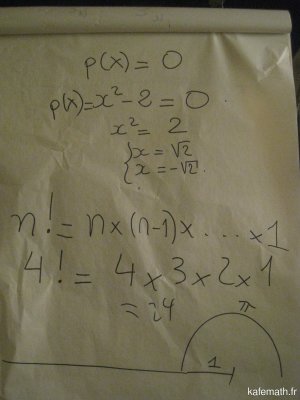 p(x) = 0
p(x) = x² - 2 = 0.
x² = 2
{ x = √2
x = -√2.
n! = n × (n-1) × .... × 1
4! = 4 × 3 × 2 × 1
= 24
π
1
kafemath.fr